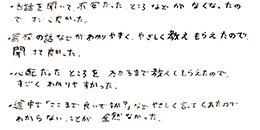 ・お話を聞いて、不安だったところなどがなくなったので、
すごく良かった。
・高校の話などがわかりやすく、やさしく教えもらえたので、
聞けて良かった。
・心配だったところをわかるまで教えてもらえたので、
すごくわかりやすかった。
・途中で「ここまで良いですか？」などやさしく言ってくれたので
わからないことが全然なかった。